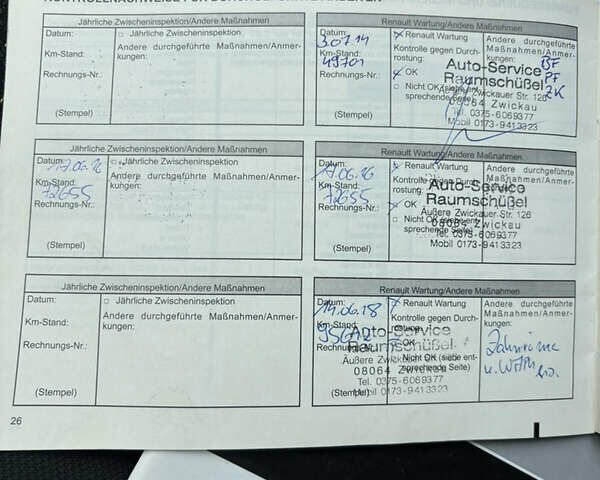 Jährliche Zwischeninspektion/Andere Maßnahmen
Datum:
□ Jährliche Zwischeninspektion
Km-Stand:
Andere durchgeführte Maßnahmen/Anmerkungen:
Rechnungs-Nr.:
(Stempel)
Renault Wartung/Andere Maßnahmen
Datum: 30.7.14
Renault Wartung
Kontrolle gegen Durchrostung:
Km-Stand: 49701
OK
Rechnungs-Nr.:
Nicht OK
Andere durchgeführte
Maßnahmen/Anmerkungen:
BF
PF
ZK
Auto-Service
Raumschüßel
Äußere Zwickauer Str. 126
08064 Zwickau
Tel. 0375-6069377
Mobil 0173-9413323
(Stempel)
Jährliche Zwischeninspektion/Andere Maßnahmen
Datum: 17.06.16
□ Jährliche Zwischeninspektion
Km-Stand: 72655
Andere durchgeführte Maßnahmen/Anmerkungen:
Rechnungs-Nr.:
(Stempel)
Renault Wartung/Andere Maßnahmen
Datum: 17.06.16
Renault Wartung
Kontrolle gegen Durchrostung:
Km-Stand: 72655
OK
Rechnungs-Nr.:
Nicht OK (siehe entsprechende Seite)
Andere durchgeführte
Maßnahmen/Anmerkungen:
Auto-Service
Raumschüßel
Äußere Zwickauer Str. 126
08064 Zwickau
Tel. 0375-6069377
Mobil 0173-9413323
(Stempel)
Jährliche Zwischeninspektion/Andere Maßnahmen
Datum:
□ Jährliche Zwischeninspektion
Km-Stand:
Andere durchgeführte Maßnahmen/Anmerkungen:
Rechnungs-Nr.:
(Stempel)
Renault Wartung/Andere Maßnahmen
Datum: 14.06.18
Renault Wartung
Kontrolle gegen Durchrostung:
Km-Stand:
OK
Rechnungs-Nr.:
Nicht OK (siehe entsprechende Seite)
Andere durchgeführte
Maßnahmen/Anmerkungen:
Zahnrieme
Auto-Service
Raumschüßel
Äußere Zwickauer
08064 Zwickau
Tel. 0375-6069377
Mobil 0173-9413323
(Stempel)
26